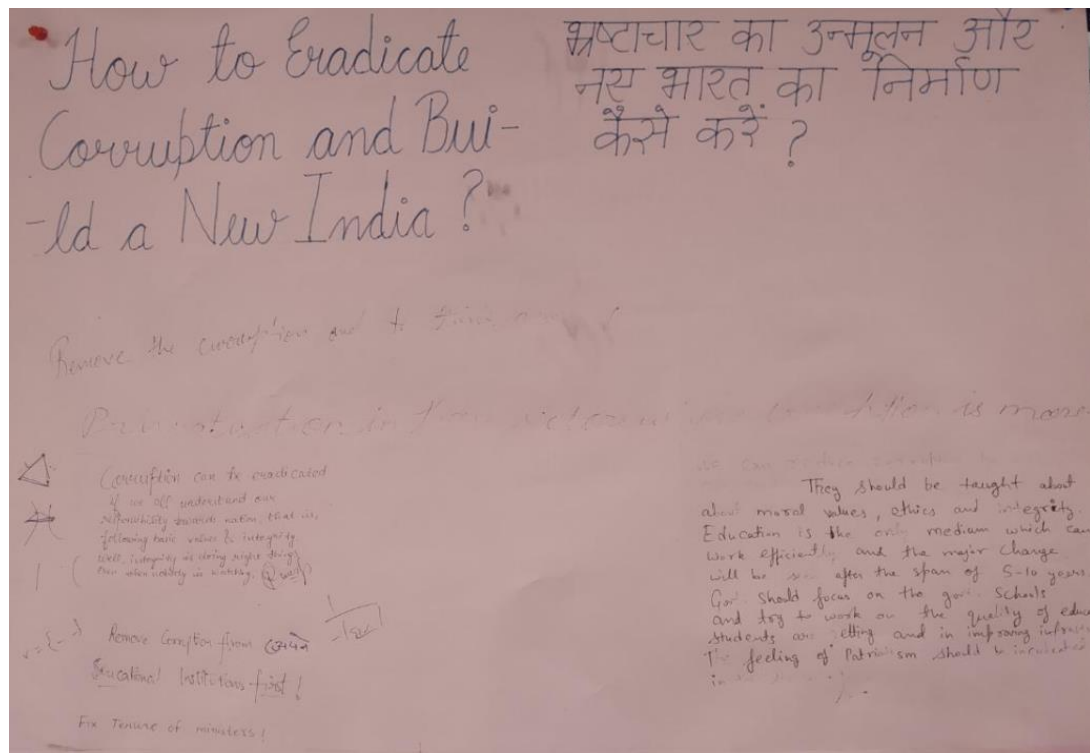 How to Eradicate
Corruption and Bui-
-ld a New India ?
भ्रष्टाचार का उन्मूलन और
नए भारत का निर्माण
कैसे करें ?
Remove the corruption and to
is more
Corruption can be eradicated
if we all understand our
responsibility towards nation, that is,
following basic values & integrity.
Well, integrity is doing right things
even when nobody is watching.
Remove Corruption from
Educational Institutions first !
Fix Tenure of ministers !
we can
They should be taught about
about moral values, ethics and integrity.
Education is the only medium which can
work efficiently and the major change
will be after the span of 5-10 years
Govt. should focus on the govt. schools
and try to work on the quality of educ
students are getting and in improving
The feeling of Patriotism should be inculcated
in